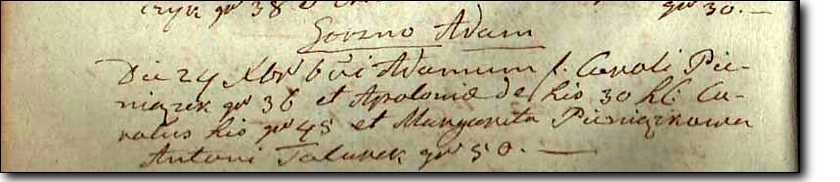 czyk qu 38 qu 30. —
Gorzno Adam
Die 24 Xbr bti Adamum f. Caroli Pie-
niązek qu 36 et Apolonia de his 30 hLC Cu-
ratus his qu 45 et Margarita Pieniązkowa
Antoni Talarek qu 50. —